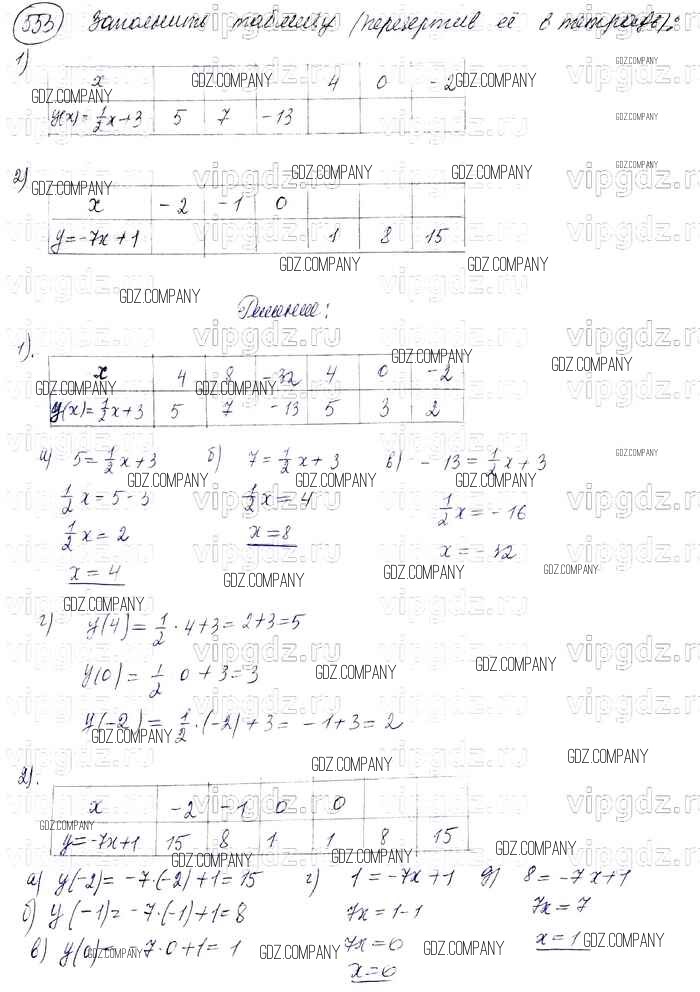 553 Заполнить таблицу (перечертив её в тетрадь):
1)
x 4 0 -2
y(x)=1/2x+3 5 7 -13
2)
x -2 -1 0
y=-7x+1 1 8 15
Решение:
1).
x 4 8 -32 4 0 -2
y(x)=1/2x+3 5 7 -13 5 3 2
а) 5=1/2x+3 б) 7=1/2x+3 в) -13=1/2x+3
1/2x=5-3 1/2x=4 1/2x=-16
1/2x=2 x=8 x=-32
x=4
г) y(4)=1/2·4+3=2+3=5
y(0)=1/2 0+3=3
y(-2)=1/2·(-2)+3=-1+3=2
2).
x -2 -1 0 0
y=-7x+1 15 8 1 1 8 15
а) y(-2)=-7·(-2)+1=15 г) 1=-7x+1 д) 8=-7x+1
б) y(-1)=-7·(-1)+1=8 7x=1-1 7x=7
в) y(0)=-7·0+1=1 7x=0 x=1
x=0
GDZ.COMPANY
vipgdz.ru